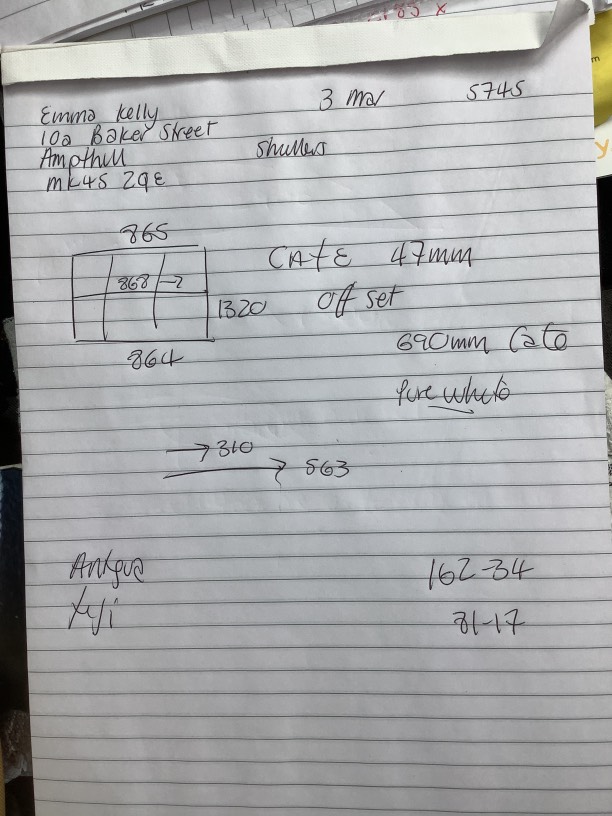 85 x
Emma Kelly 3 Mar 5745
10a Baker Street
Ampthill Shutters
MK45 2QE
865
CAtE 47mm
868 -2
1320 Off set
864 690mm Cate
Pure White
→310
→ 563
Antigua 162-34
Fuji 81-17